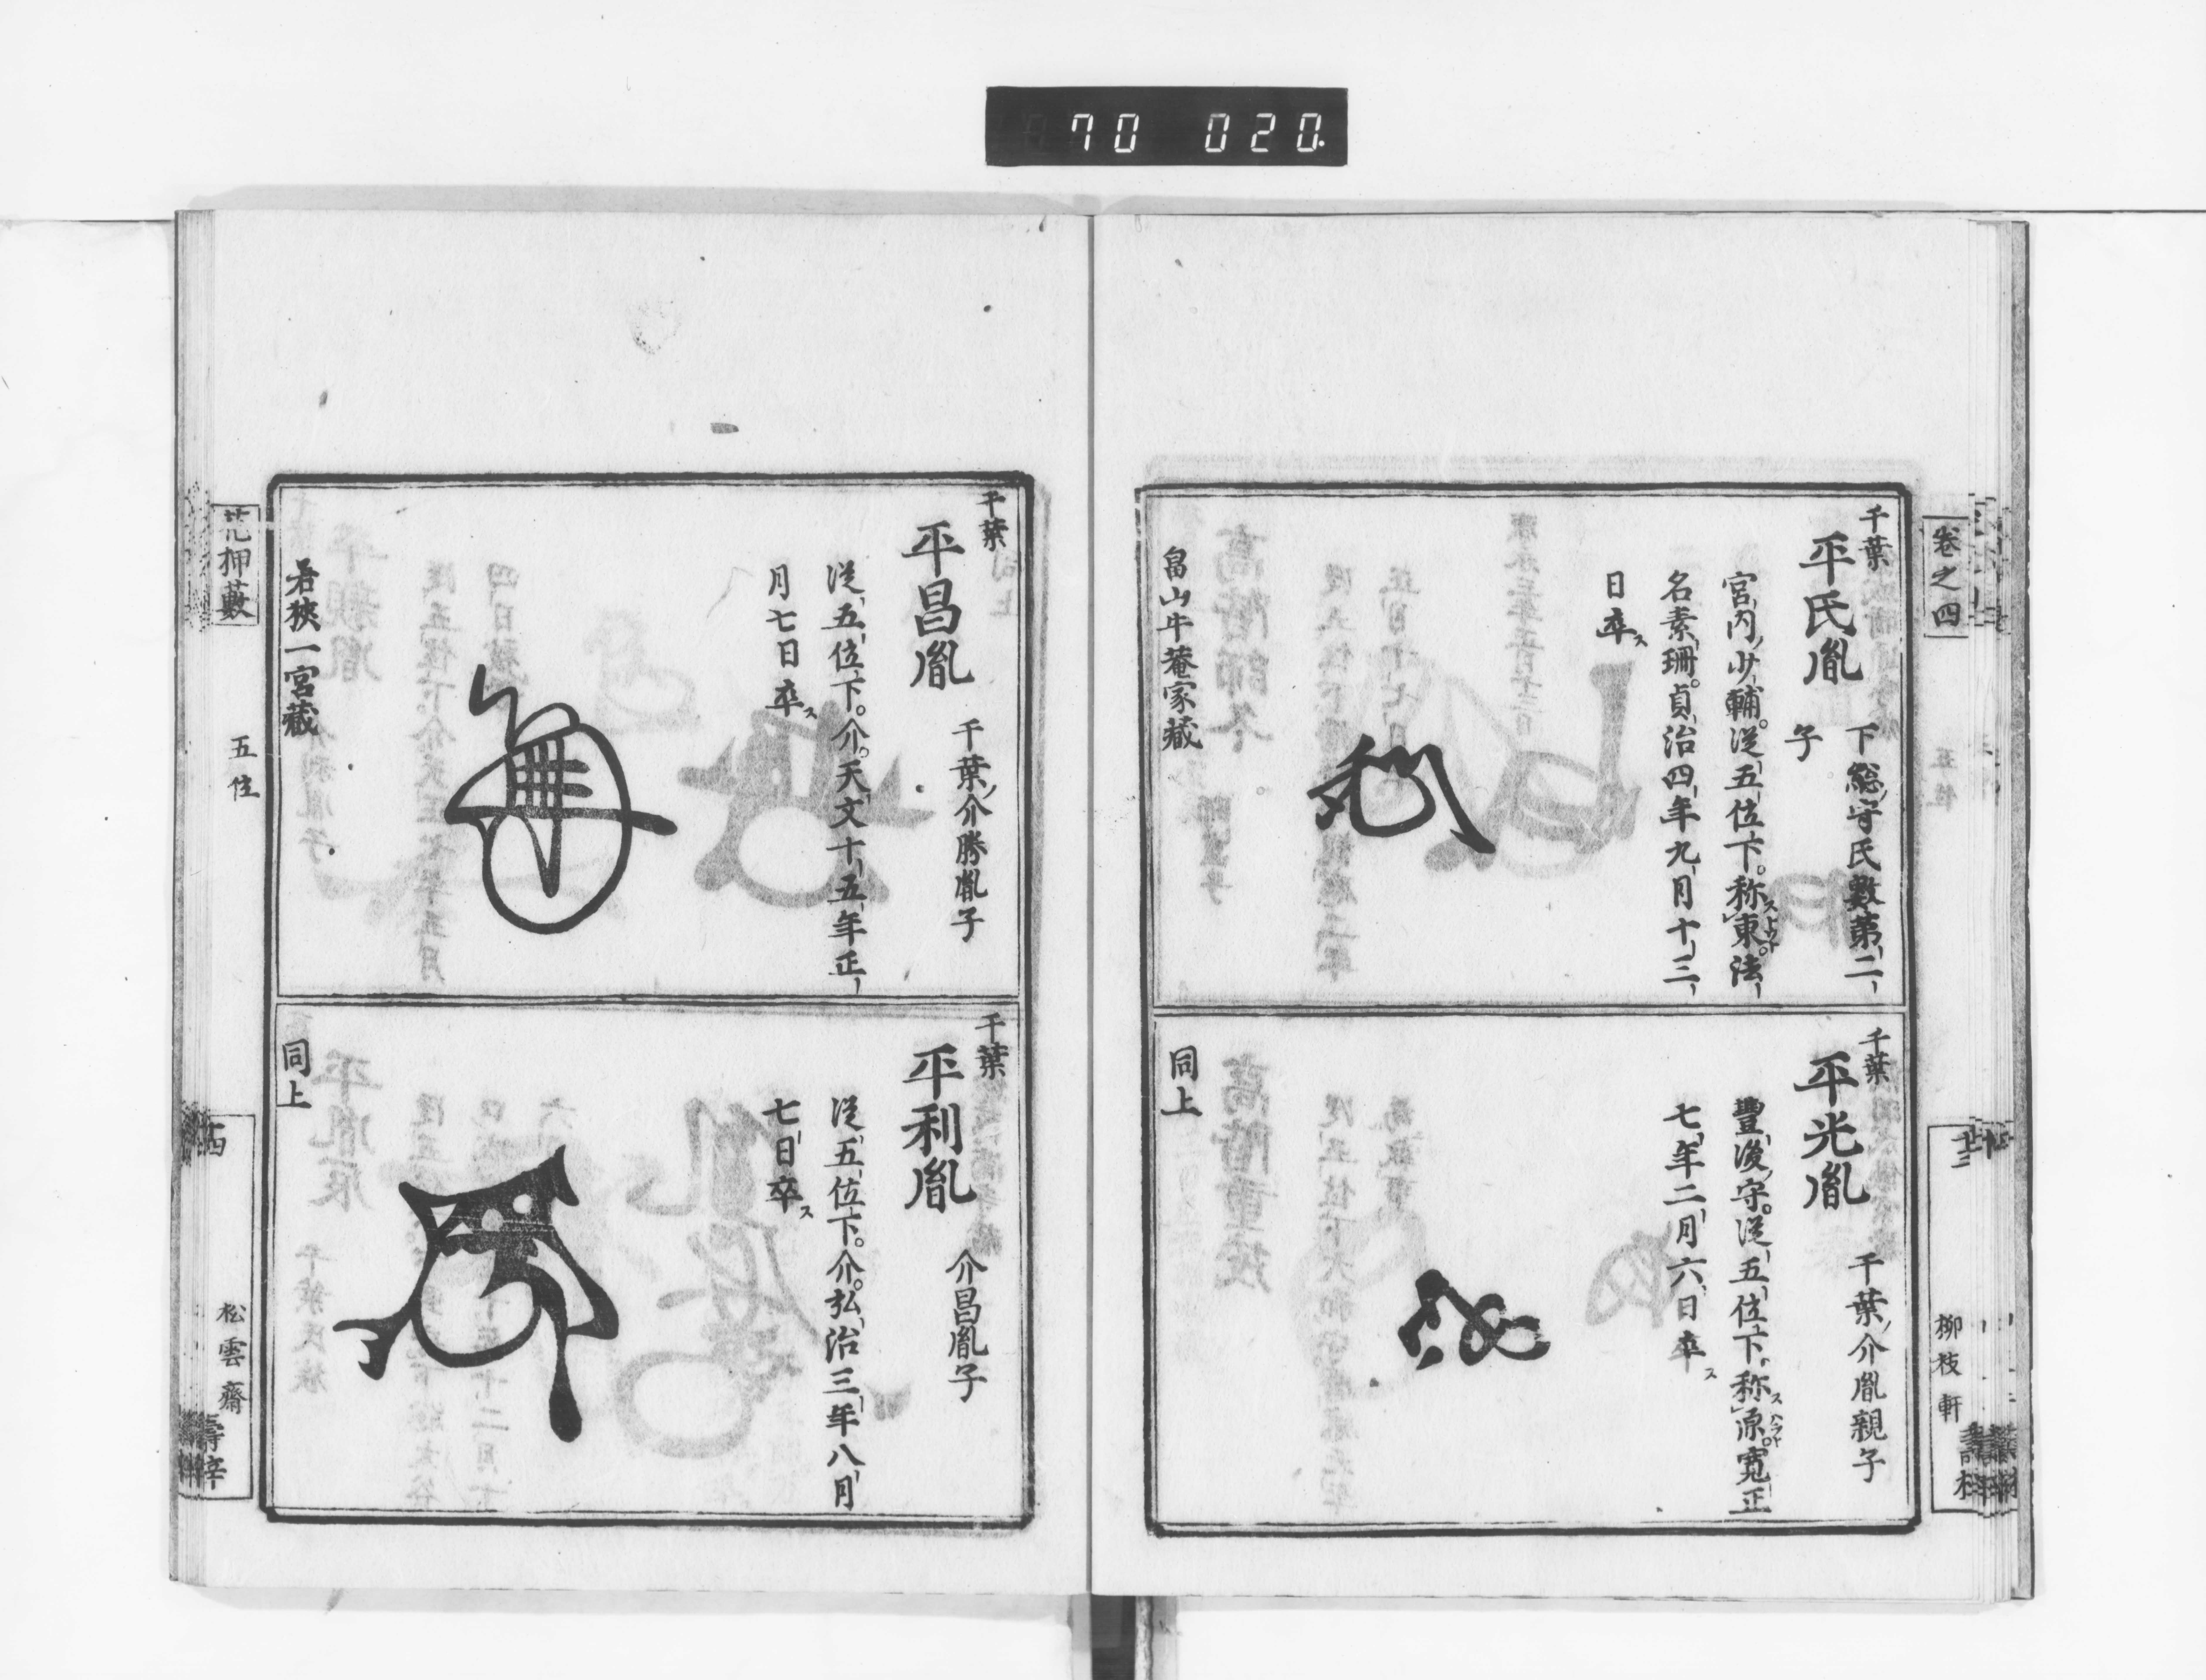 70 020
卷之四
千葉
平氏胤
下総ノ守氏數第二
子
宮内ノ少輔。従五位下。称ス東トウト。法
名素珊。貞治四年九月十三
日卒ス
畠山牛菴家蔵
千葉
平光胤
千葉ノ介胤親子
豊後ノ守。従五位下。称ス原ハラト。寛正
七年二月六日卒ス
同上
柳枝軒
千葉
平昌胤
千葉ノ介勝胤子
従五位下。介。天文十五年正
月七日卒ス
若狹一宮蔵
千葉
平利胤
介昌胤子
従五位下。介。弘治三年八月
七日卒ス
同上
花押藪
五位
松雲齋